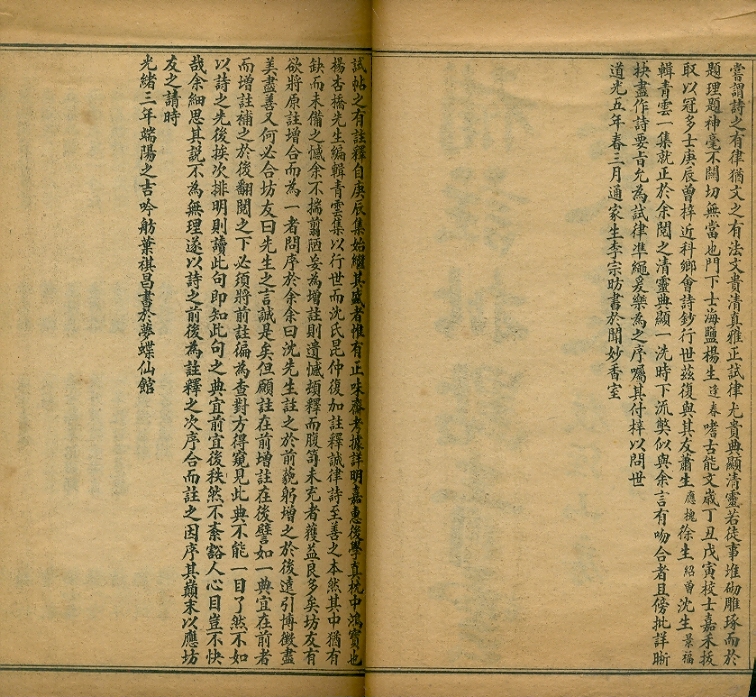 嘗謂詩之有律猶文之有法文貴清真雅正試律尤貴典顯清靈若徒事堆砌雕琢而於
題理題神毫不關切無當也門下士海鹽楊生逢春嗜古能文歲丁丑戊寅校士嘉禾拔
取以冠多士庚辰曾梓近科鄉會詩鈔行世茲復與其友蕭生應槐徐生紹曾沈生景福
輯青雲一集就正於余閱之清靈典顯一洗時下流弊似與余言有吻合者且傍批詳晰
抉盡作詩要旨允為試律準繩爰樂為之序囑其付梓以問世
道光五年春三月通家生李宗昉書於聞妙香室
試帖之有註釋自庚辰集始繼其盛者惟有正味齋考據詳明嘉惠後學真枕中鴻寶也
楊杏橋先生編輯青雲集以行世而沈氏昆仲復加註釋誠律詩至善之本然其中猶有
缺而未備之憾余不揣翦陋妄為增註則遺憾頓釋而腹笥未充者獲益良多矣坊友有
欲將原註增合而為一者問序於余余曰沈先生註之於前藐躬增之於後遠引博徵盡
美盡善又何必合坊友曰先生之言誠是矣但顧註在前增註在後譬如一典宜在前者
而增註補之於後翻閱之下必須將前註徧為查對方得窺見此典不能一目了然不如
以詩之先後挨次排明則讀此句即知此句之典宜前宜後秩然不紊豁人心目豈不快
哉余細思其說不為無理遂以詩之前後為註釋之次序合而註之因序其巔末以應坊
友之請時
光緒三年端陽之吉吟舫葉祺昌書於夢蝶仙館